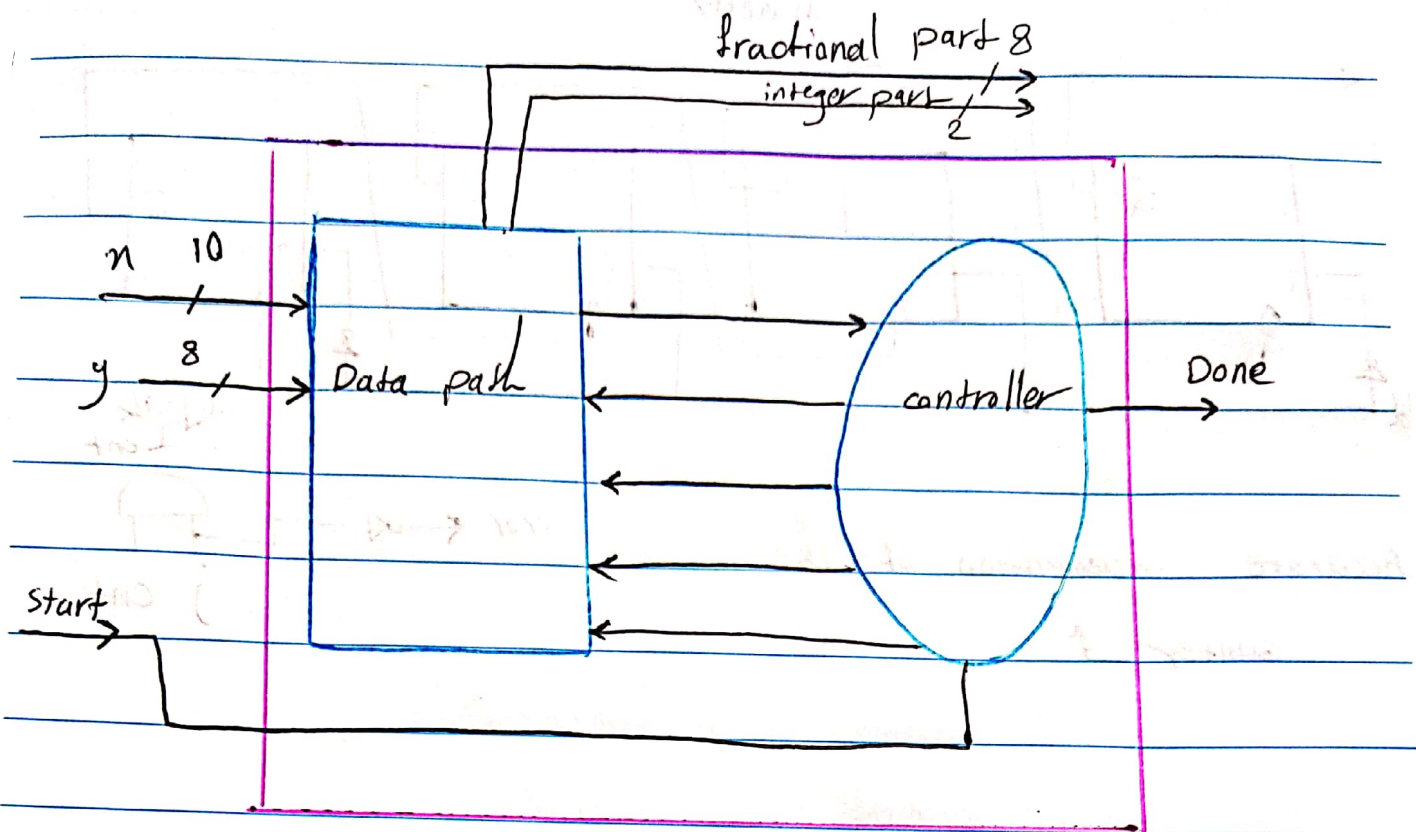 fractional part 8
integer part
2
n 10
y 8
Data path
controller
Done
start